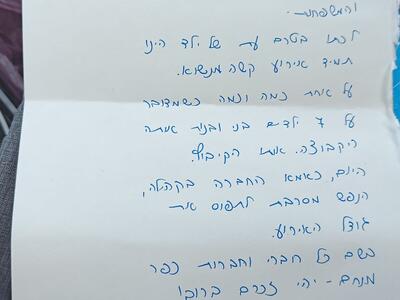 והמשפחות.
לכתו בטרם עת של ילד הינו
תמיד אירוע קשה מנשוא.
על אחת כמה וכמה כשמדובר
על 7 ילדים בני ובנות אותה
הקבוצה. אותו הקיבוץ.
היום, כאמא החברה בקהילה,
הנפש מסרבת לתפוס את
גודל האירוע.
בשם כל חברי וחברות כפר
מנחם - יהי זכרם ברוך!